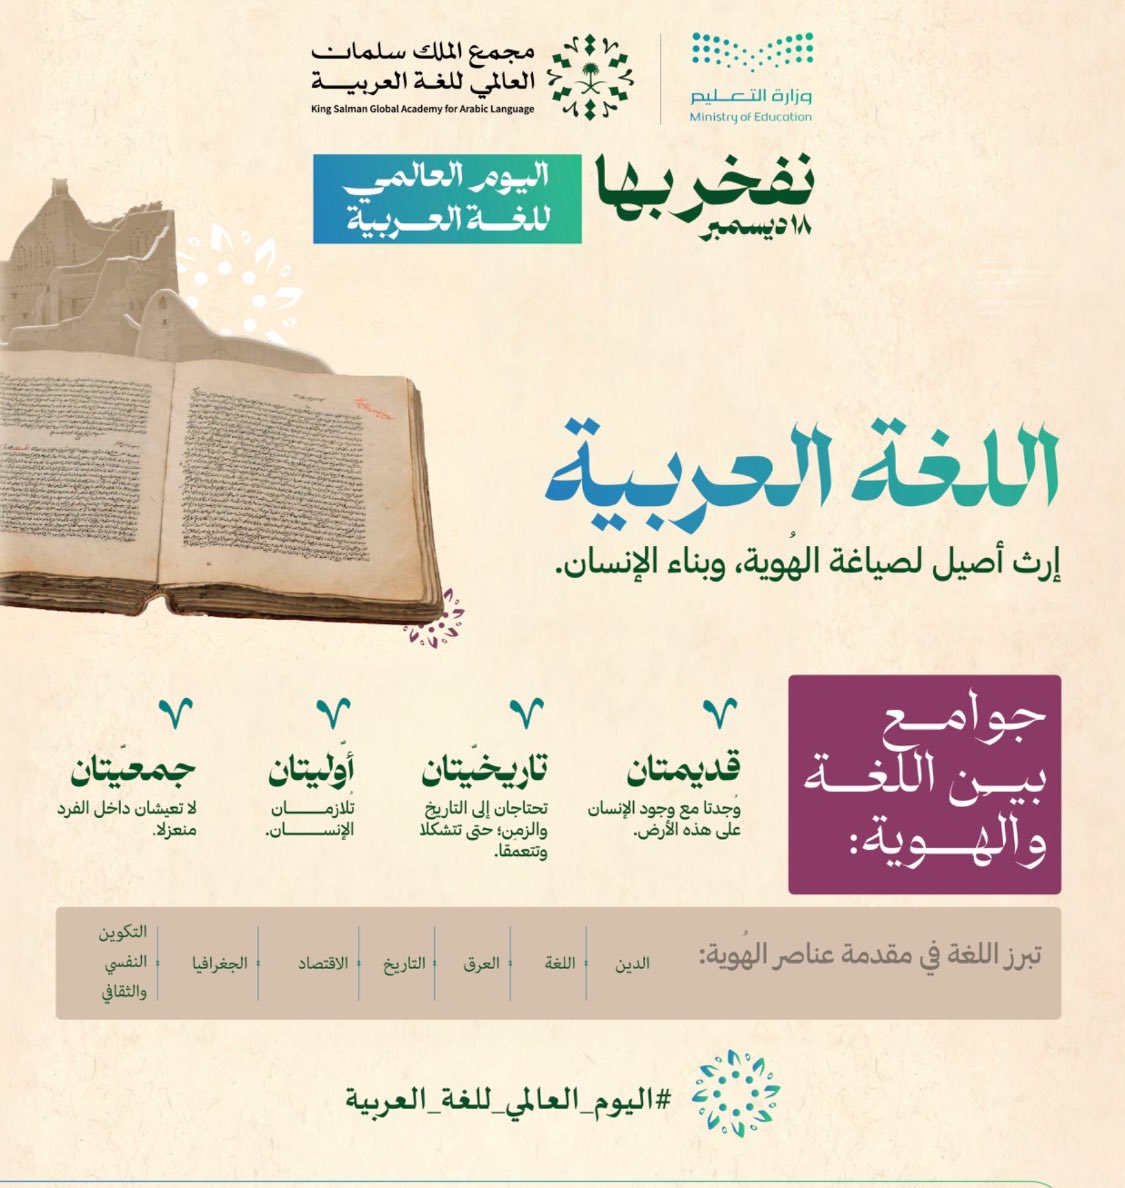 وزارة التعليم
Ministry of Education
مجمع الملك سلمان
العالمي للغة العربية
King Salman Global Academy for Arabic Language
نفخر بها
١٨ ديسمبر
اليوم العالمي
للغة العربية
اللغة العربية
إرث أصيل لصياغة الهُوية، وبناء الإنسان.
جوامع
بين اللغة
والهوية:
قديمتان
وُجدتا مع وجود الإنسان
على هذه الأرض.
تاريخيّتان
تحتاجان إلى التاريخ
والزمن؛ حتى تتشكلا
وتتعمقا.
أوّليتان
تُلازمان
الإنسان.
جمعيّتان
لا تعيشان داخل الفرد
منعزلا.
تبرز اللغة في مقدمة عناصر الهُوية:
الدين
اللغة
العرق
التاريخ
الاقتصاد
الجغرافيا
التكوين
النفسي
والثقافي
#اليوم_العالمي_للغة_العربية